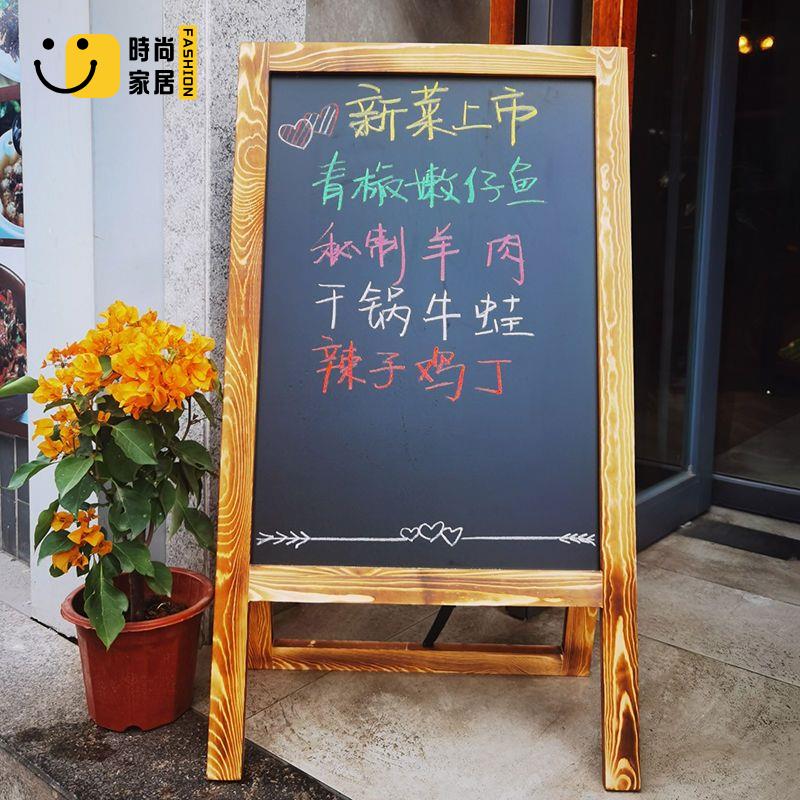 時尚
家居
FASHION
新菜上市
青椒嫩仔鱼
秘制羊肉
干锅牛蛙
辣子鸡丁